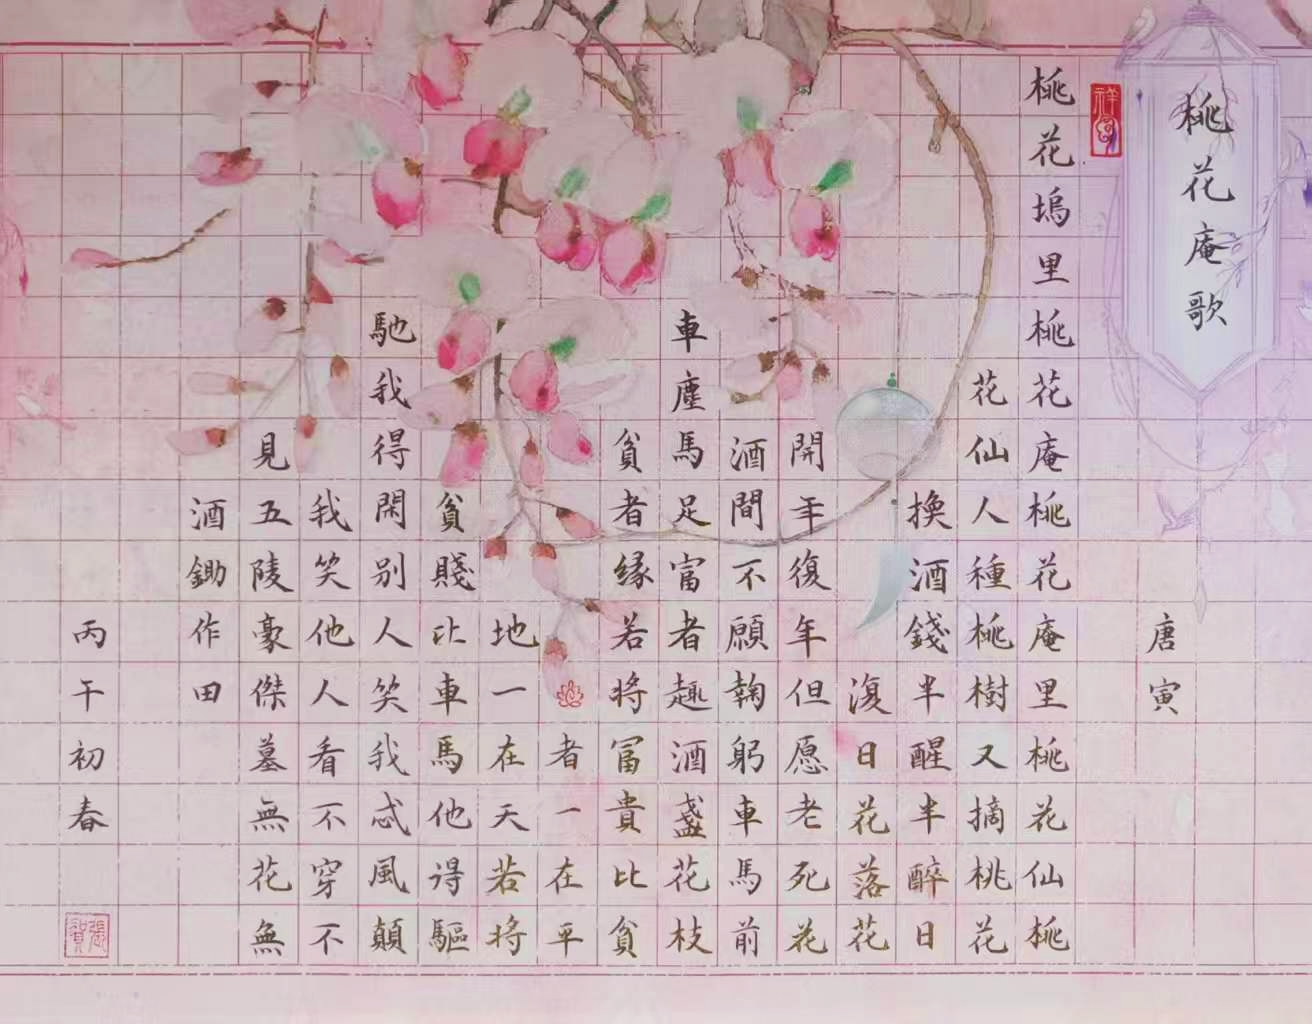 桃花庵歌
唐寅
桃花塢里桃花庵桃花庵里桃花仙桃
花仙人種桃樹又摘桃花
換酒錢半醒半醉日
復日花落花
開年復年但愿老死花
酒間不願鞠躬車馬前
車塵馬足富者趣酒盞花枝
貧者緣若將富貴比貧
者一在平
地一在天若將
貧賤比車馬他得驅
馳我得閑別人笑我忒風顛
我笑他人看不穿不
見五陵豪傑墓無花無
酒鋤作田
丙午初春